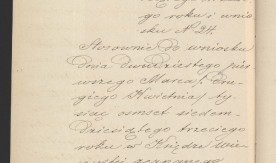 go roku i wnio
sku № 24.
Stosownie do wniosku
dnia dwudziestego pier
wszego Marca / dru
giego Kwietnia / ty
siąc ośmset siedem
dziesiątego trzeciego
roku w Księdze wie